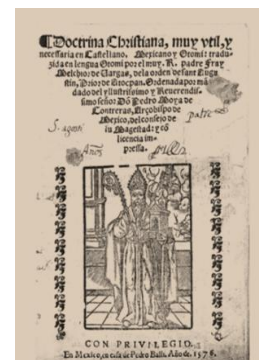 ¶Doctrina Christiana, muy vtil, y
necessaria en Castellano, Mexicano y Otomi: tradu-
zida en lengua Otomi por el muy. R. padre Fray
Melchior de Vargas, dela orden de sant Augu
stin, Prior de Atocpan. Ordenada por mã
dado del yllustrissimo y Reuerendis-
simo señor Dõ Pedro Moya de
Contreras, Arçobispo de
Mexico, del consejo de
su Magestad: y cõ
licencia im-
pressa.
S. agosti
CON PRIVILEGIO.
En Mexico, en casa de Pedro Balli. Año de. 1576.